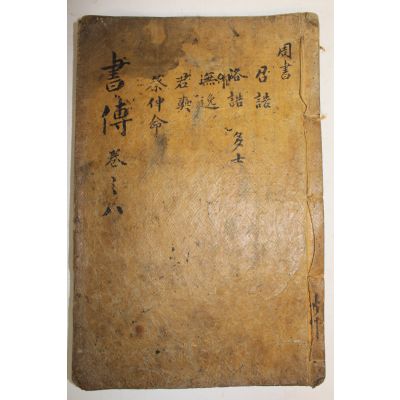 周書
召誥
洛誥 多士
無逸
君奭
蔡仲命
書傳 卷之八